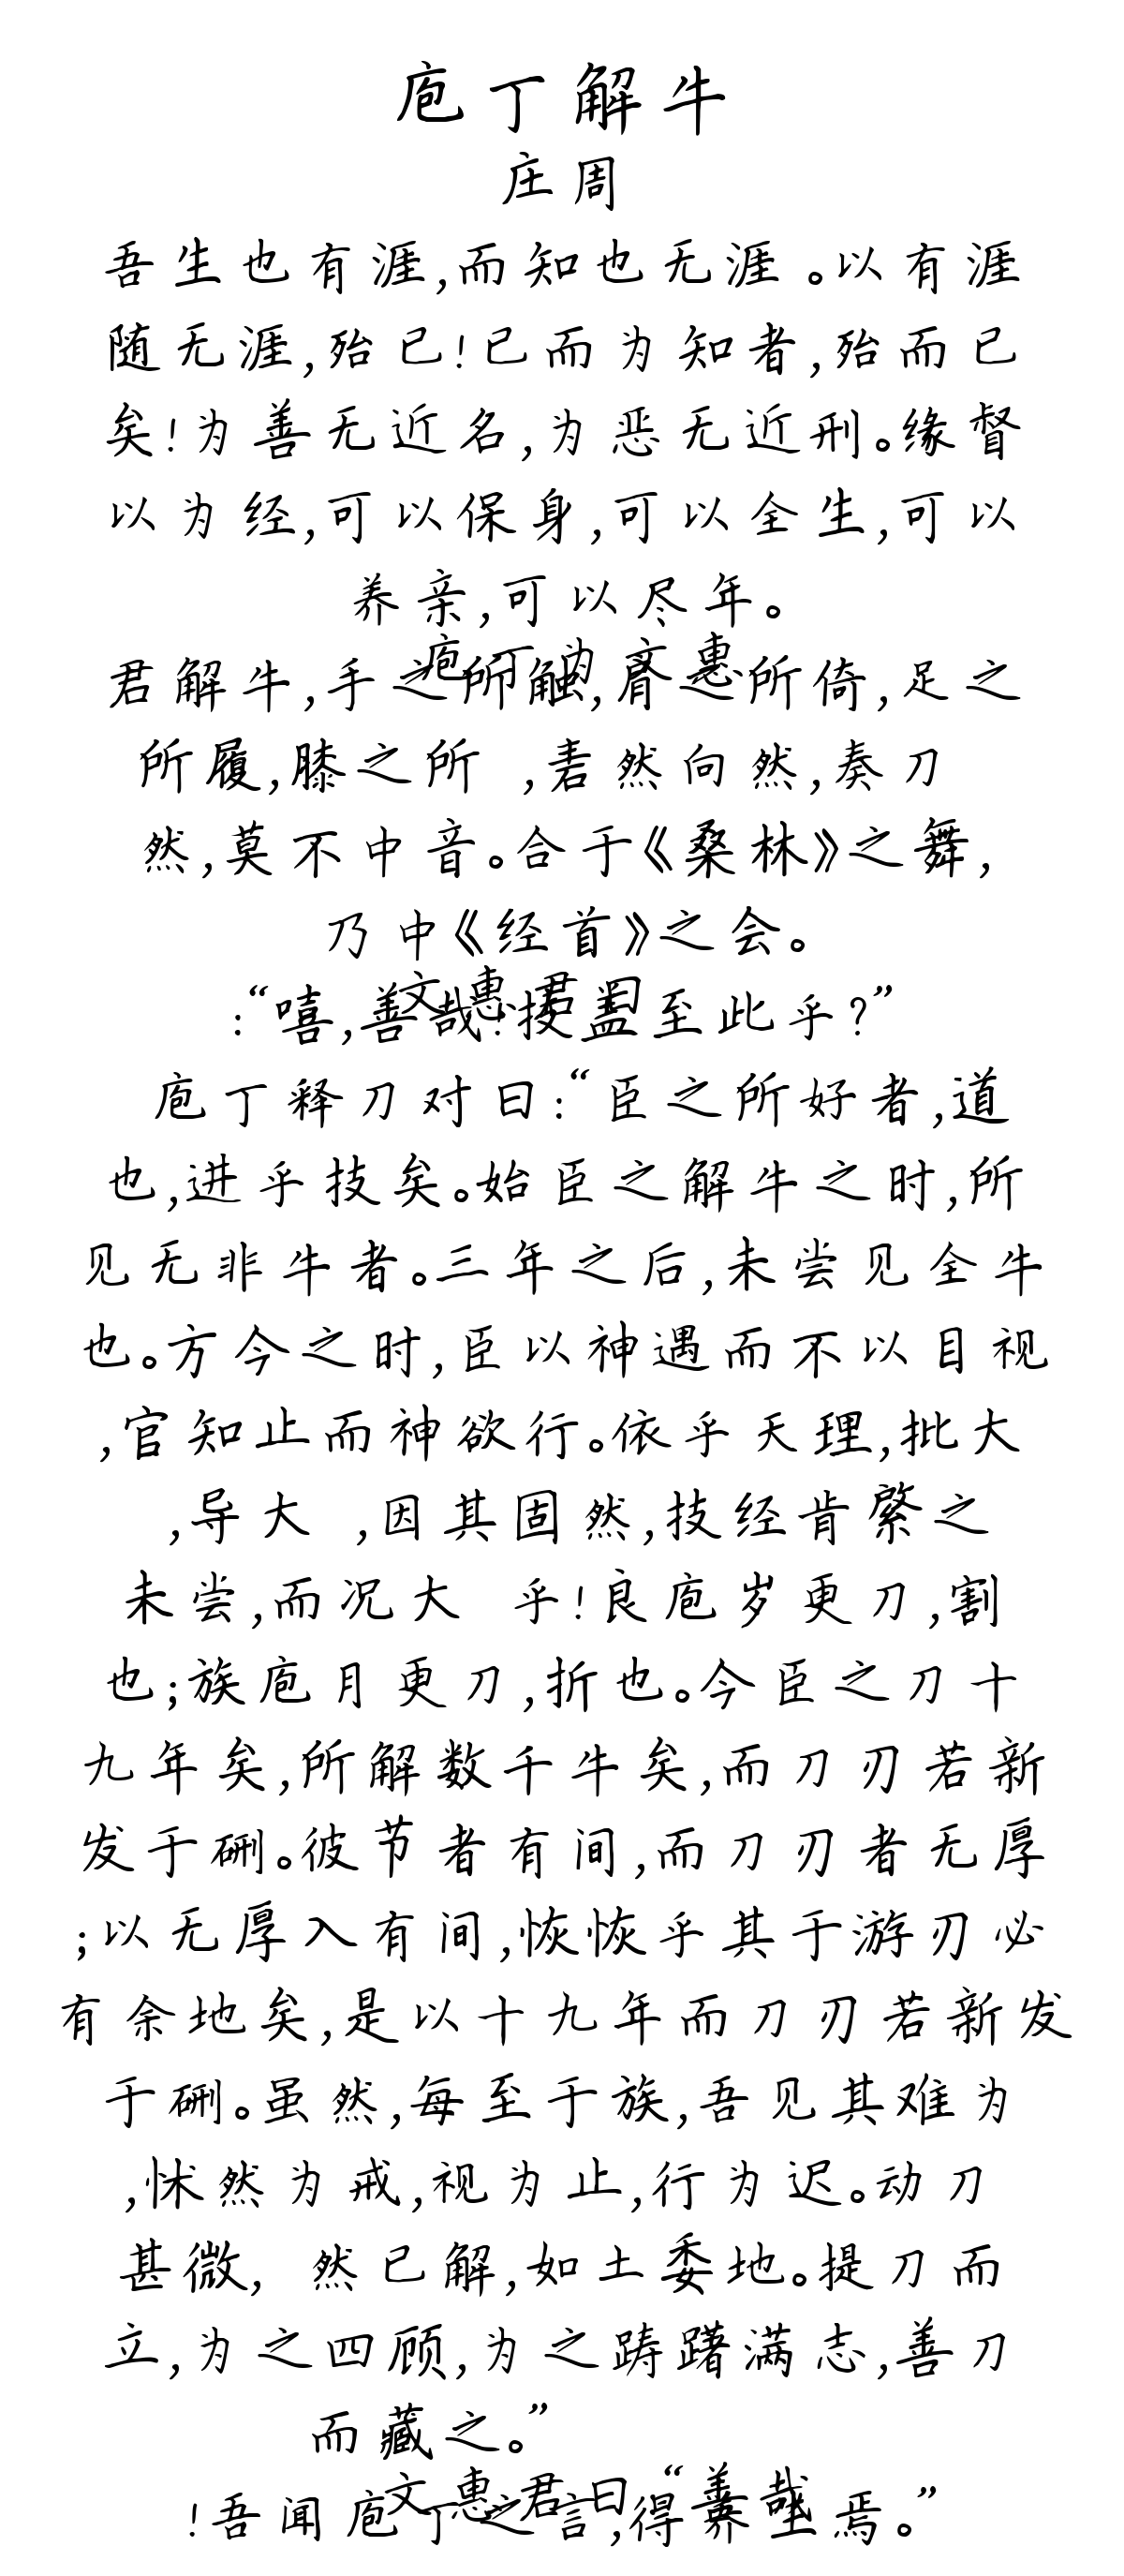 庖丁解牛
庄周
吾生也有涯,而知也无涯。以有涯
随无涯,殆已!已而为知者,殆而已
矣!为善无近名,为恶无近刑。缘督
以为经,可以保身,可以全生,可以
养亲,可以尽年。
庖丁为文惠
君解牛,手之所触,肩之所倚,足之
所履,膝之所 ,砉然向然,奏刀
然,莫不中音。合于《桑林》之舞,
乃中《经首》之会。
文惠君曰
:“嘻,善哉!技盖至此乎?”
庖丁释刀对曰:“臣之所好者,道
也,进乎技矣。始臣之解牛之时,所
见无非牛者。三年之后,未尝见全牛
也。方今之时,臣以神遇而不以目视
,官知止而神欲行。依乎天理,批大
,导大 ,因其固然,技经肯綮之
未尝,而况大 乎!良庖岁更刀,割
也;族庖月更刀,折也。今臣之刀十
九年矣,所解数千牛矣,而刀刃若新
发于硎。彼节者有间,而刀刃者无厚
;以无厚入有间,恢恢乎其于游刃必
有余地矣,是以十九年而刀刃若新发
于硎。虽然,每至于族,吾见其难为
,怵然为戒,视为止,行为迟。动刀
甚微, 然已解,如土委地。提刀而
立,为之四顾,为之踌躇满志,善刀
而藏之。”
文惠君曰“善哉
!吾闻庖丁之言,得养生焉。”